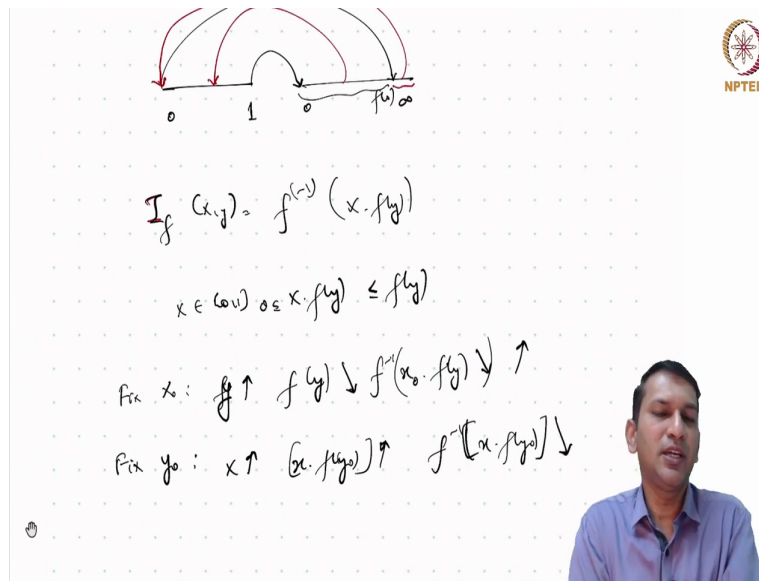 NPTEL
0 1 0 f(0) ∞
I_f (x,y) = f^(-1) (x·f(y))
x ∈ [0,1] 0 ≤ x·f(y) ≤ f(y)
Fix x₀ : y ↑ f(y) ↓ f^-1(x₀·f(y)) ↓ ↑
Fix y₀ : x ↑ [x·f(y₀)] ↑ f^-1[x·f(y₀)] ↓